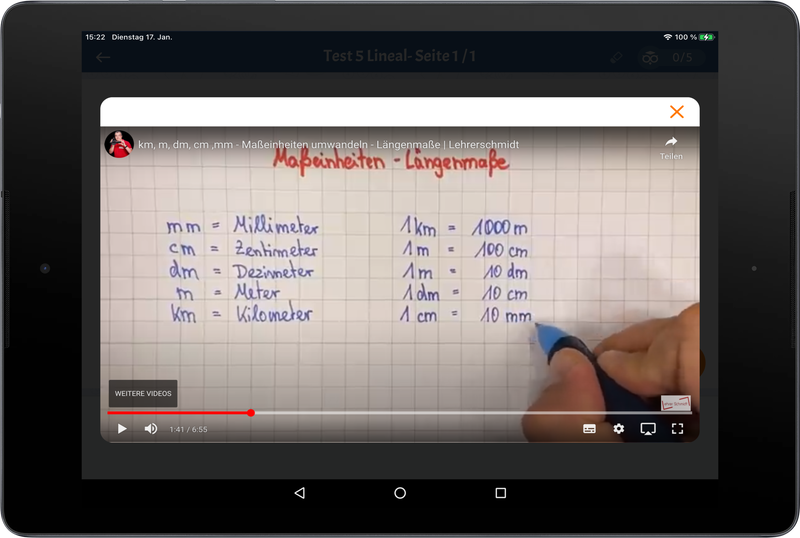 15:22 Dienstag 17. Jan. 100 %
Test 5 Lineal- Seite 1 / 1 0/5
km, m, dm, cm ,mm - Maßeinheiten umwandeln - Längenmaße | Lehrerschmidt
Teilen
Maßeinheiten - Längenmaße
mm = Millimeter 1 km = 1000 m
cm = Zentimeter 1 m = 100 cm
dm = Dezimeter 1 m = 10 dm
m = Meter 1 dm = 10 cm
km = Kilometer 1 cm = 10 mm
WEITERE VIDEOS
1:41 / 6:55